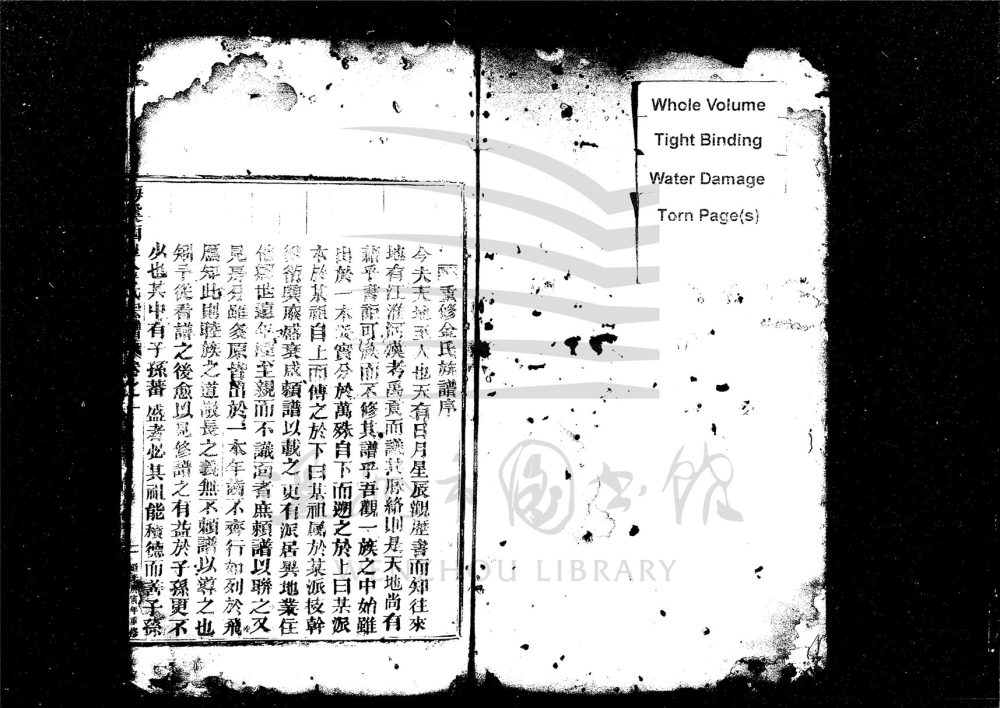 Whole Volume
Tight Binding
Water Damage
Torn Page(s)
重修金氏族譜序
今夫天地至人也天有日月星辰觀歷書而知往來
地有江淮河漢考禹貢而識其脉絡則是天地尚有
藉乎書記可族而不修其譜乎吾觀一族之中始雖
出於一本實分於萬殊自下而遡之於上曰某派
本於某祖自上而傳之於下曰某祖属於某派枝幹
興廢盛衰咸頼譜以載之更有派居異地業住
他鄉世遠年湮至親而不識面者庶頼譜以聯之又
見房分雖多原皆出於一本年齒不齊行如列於飛
應知此則睦族之道敬長之義無不頼譜以導之也
從看譜之後愈以見修譜之有益於子孫更不
少也其中有子孫蕃盛者必其祖能積德而善子孫
LIBRARY